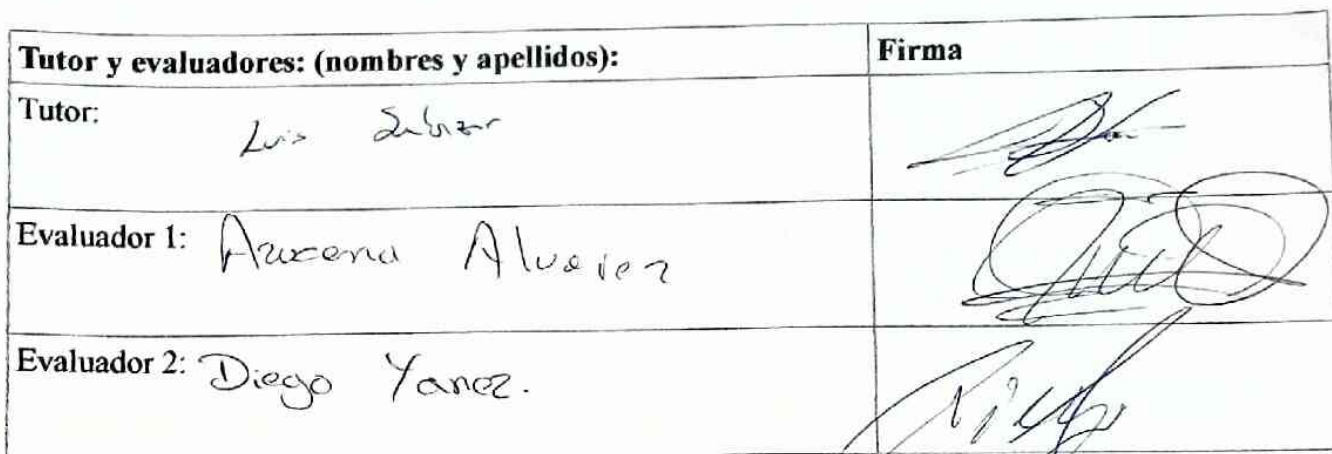 Tutor y evaluadores: (nombres y apellidos): Firma
Tutor: Luis Salazar
Evaluador 1: Azucena Alvarez
Evaluador 2: Diego Yanez.